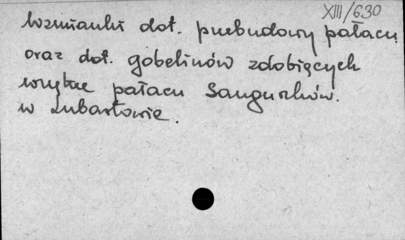 XIII/630
Wzmianki dot. przebudowy pałacu
oraz dot. gobelinów zdobiących
wnętrze pałacu Sanguszków
w Lubartowie.